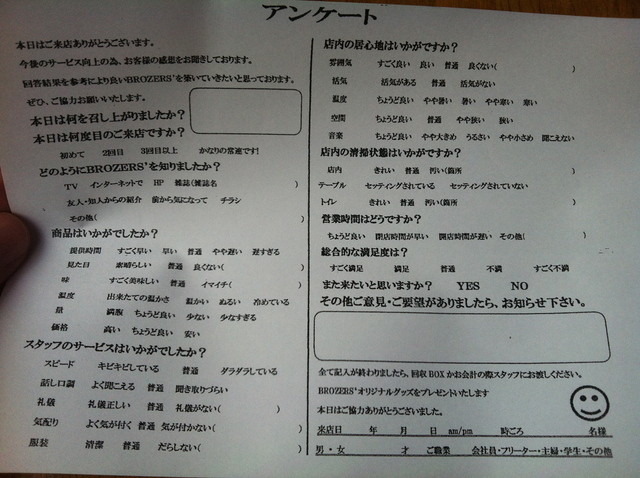 アンケート
本日はご来店ありがとうございます。
今後のサービス向上の為、お客様の感想をお聞きしております。
回答結果を参考により良いBROZERS'を築いていきたいと思っております。
ぜひ、ご協力お願いいたします。
本日は何を召し上がりましたか?
本日は何度目のご来店ですか?
初めて 2回目 3回目以上 かなりの常連です!
どのようにBROZERS'を知りましたか?
TV インターネットで HP 雑誌(雑誌名 )
友人・知人からの紹介 前から気になって チラシ
その他( )
商品はいかがでしたか?
提供時間 すごく早い 早い 普通 やや遅い 遅すぎる
見た目 素晴らしい 普通 良くない( )
味 すごく美味しい 普通 イマイチ( )
温度 出来たての温かさ 温かい ぬるい 冷めている
量 満腹 ちょうど良い 少ない 少なすぎる
価格 高い ちょうど良い 安い
スタッフのサービスはいかがでしたか?
スピード キビキビしている 普通 ダラダラしている
話し口調 よく聞こえる 普通 聞き取りづらい
礼儀 礼儀正しい 普通 礼儀がない( )
気配り よく気が付く 普通 気が付かない( )
服装 清潔 普通 だらしない( )
店内の居心地はいかがですか?
雰囲気 すごく良い 良い 普通 良くない( )
活気 活気がある 普通 活気がない
温度 ちょうど良い やや暑い 暑い やや寒い 寒い
空間 ちょうど良い 普通 やや狭い 狭い
音楽 ちょうど良い やや大きめ うるさい やや小さめ 聞こえない
店内の清掃状態はいかがですか?
店内 きれい 普通 汚い(箇所 )
テーブル セッティングされている セッティングされていない
トイレ きれい 普通 汚い(箇所 )
営業時間はどうですか?
ちょうど良い 閉店時間が早い 開店時間が遅い その他( )
総合的な満足度は?
すごく満足 満足 普通 不満 すごく不満
また来たいと思いますか? YES NO
その他ご意見・ご要望がありましたら、お知らせ下さい。
全て記入が終わりましたら、回収BOXかお会計の際スタッフにお渡しください。
BROZERS'オリジナルグッズをプレゼントいたします
本日はご協力ありがとうございました。
来店日 年 月 日 am/pm 時ごろ 名様
男・女 才 ご職業 会社員・フリーター・主婦・学生・その他